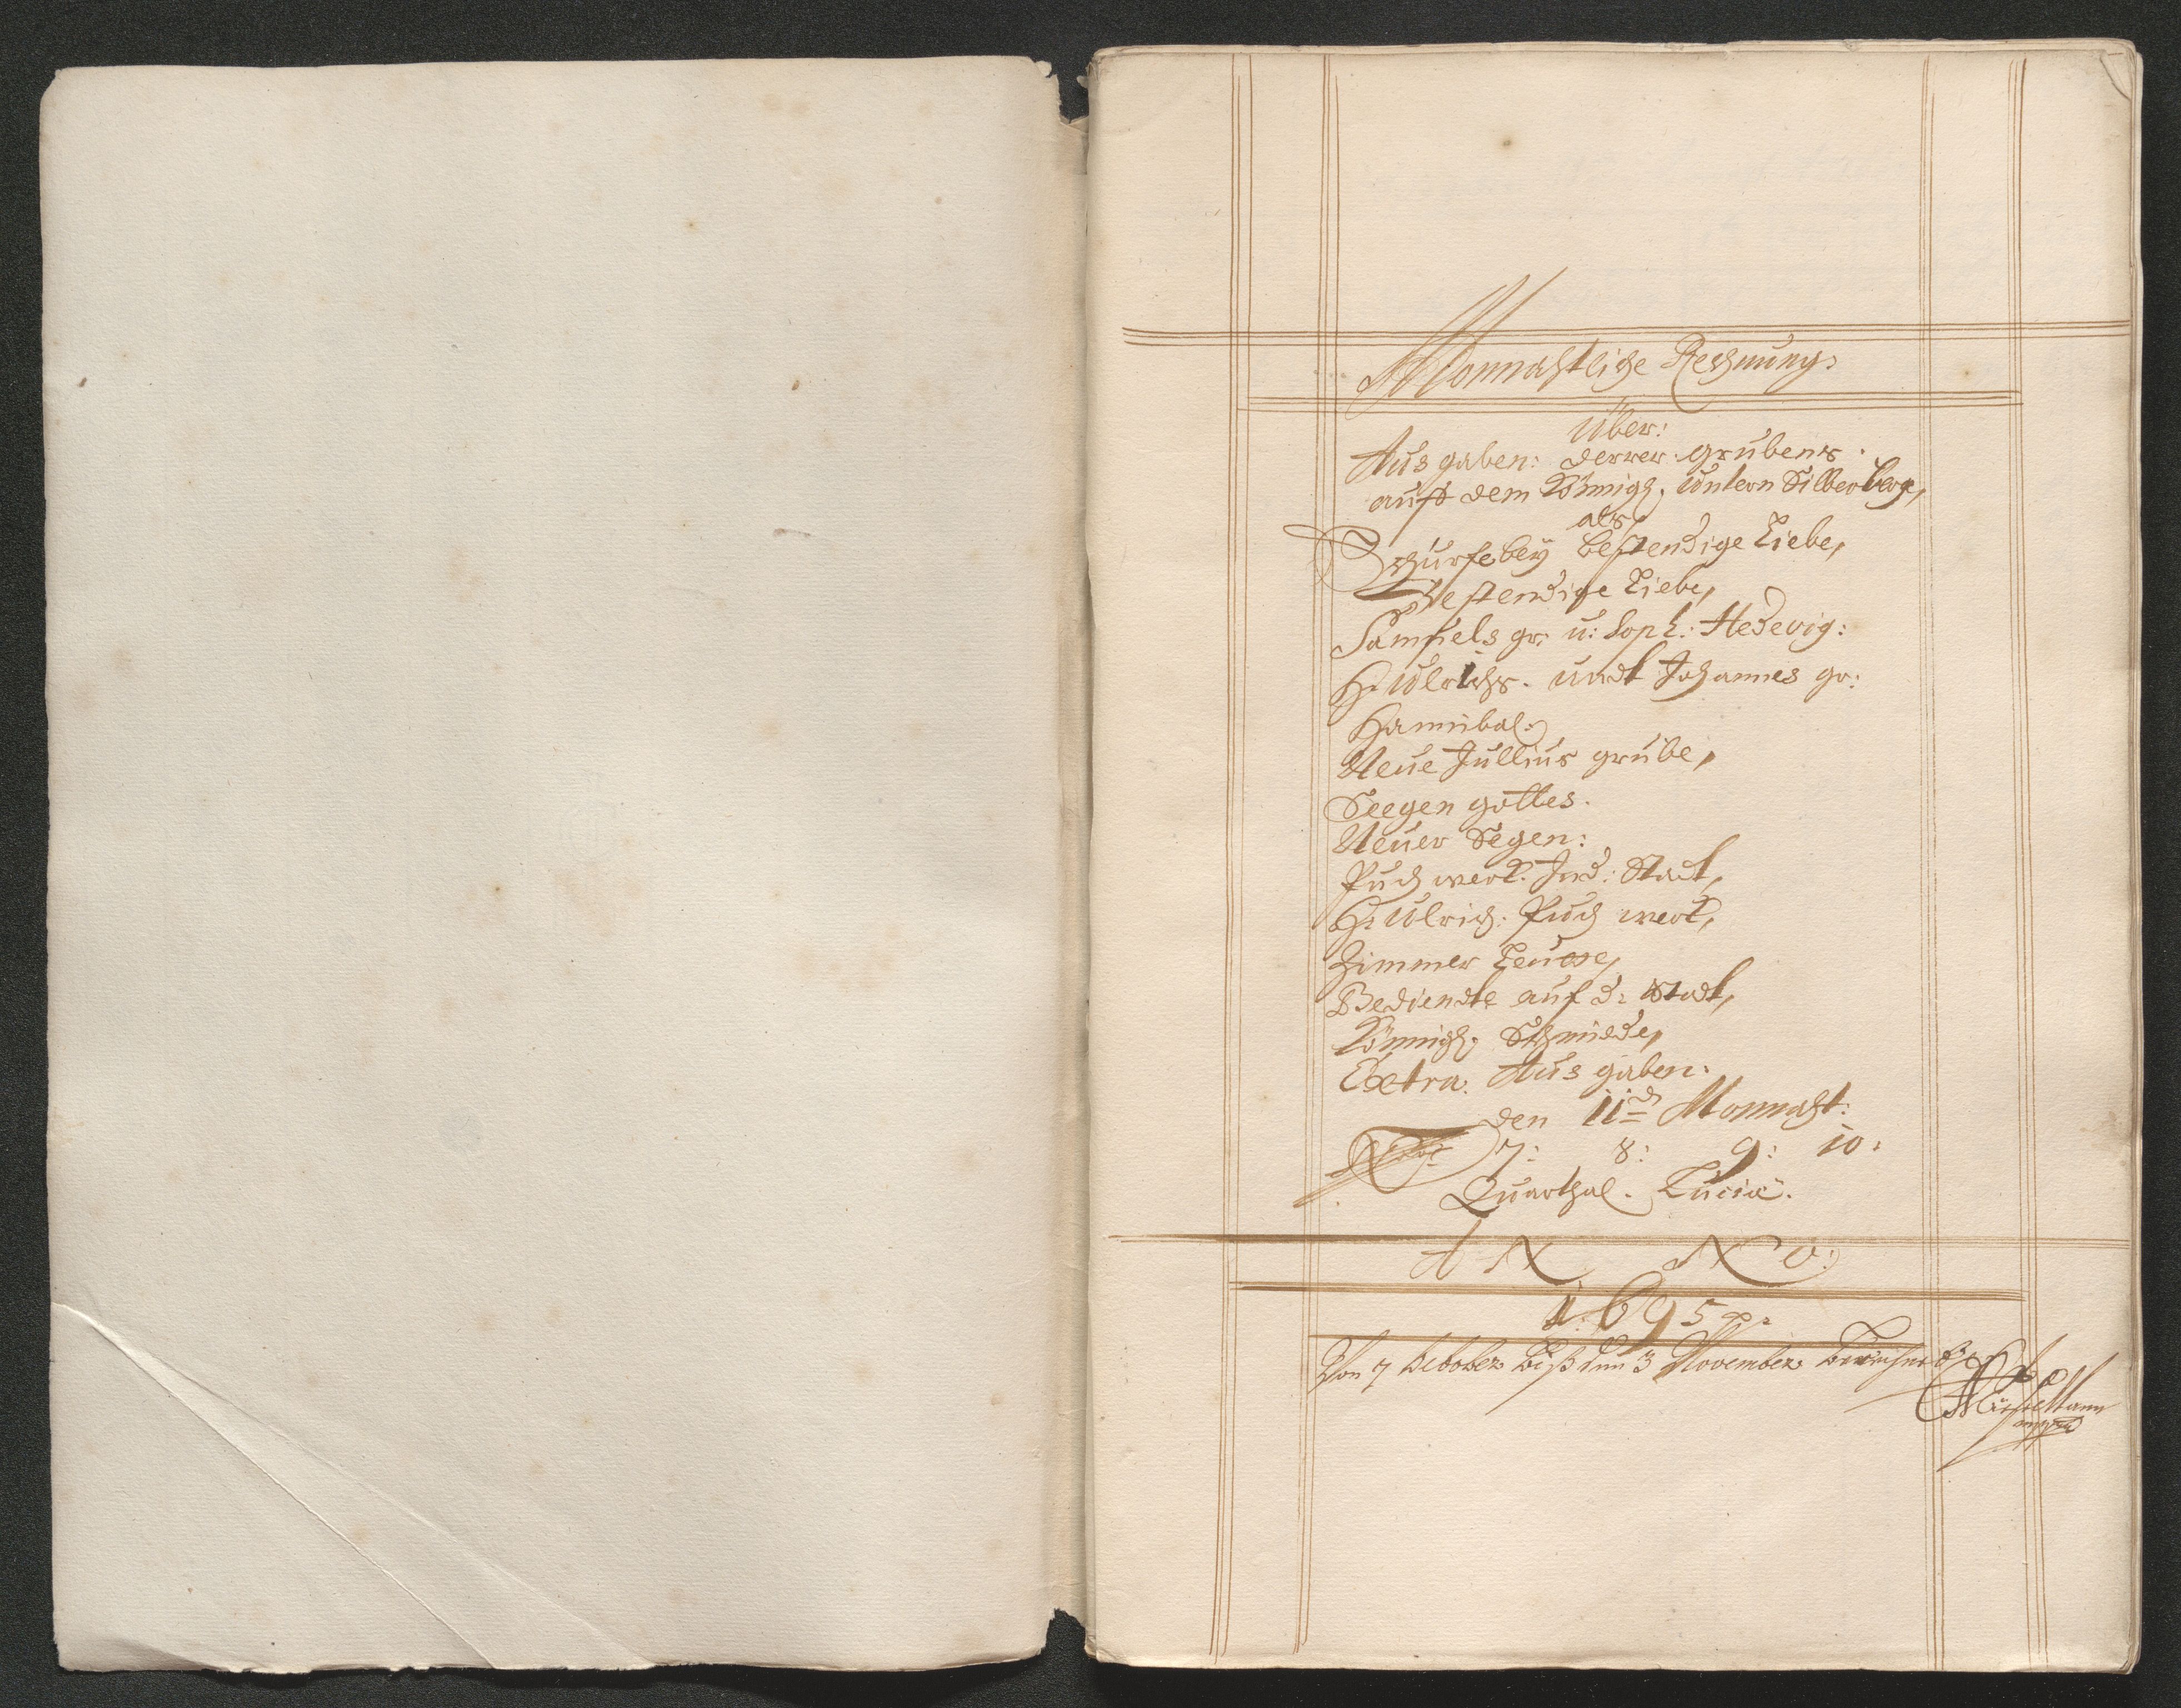 Monnahtliche Rechnung:
Über:
Ausgaben: derrer grubens.
auff dem Könnigh: Untern Silberberge,
als,
Schürfe bey bestendige Liebe,
Bestendige Liebe,
Samuels gr: u: Soph: Hedevig:
H: Ulrichs. undt Johannes gr:
Hannibal:
Neue Jullius grube,
Seegen gottes.
Neuer Segen:
Puch werk. Ind: Stadt,
H: Ulrich: Puch werk,
Zimmer Leute,
Bediendte auf d: Stadt,
Könnigh: Schmiede,
Extra. Ausgaben.
den 11d Monnaht:
7: 8: 9: 10:
Quarthal. Luciæ.
ANNO:
1695
Von 7 October biß den 3 November